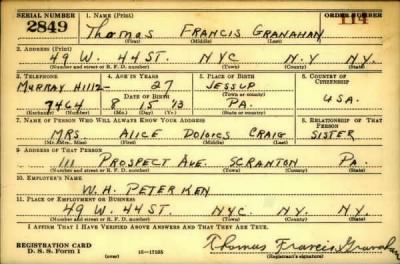 SERIAL NUMBER 1. NAME (Print) ORDER NUMBER
2849 Thomas FRANCIS GRANAHAN 114
(First) (Middle) (Last)
2. ADDRESS (Print)
49 W. 44 ST. NYC N.Y N.Y.
(Number and street or R. F. D. number) (Town) (County) (State)
3. TELEPHONE 4. AGE IN YEARS 5. PLACE OF BIRTH 6. COUNTRY OF CITIZENSHIP
MURRAY HILL 2- 27 JESSUP
DATE OF BIRTH (Town or county)
7464 8 15 '13 PA. USA.
(Exchange) (Number) (Mo.) (Day) (Yr.) (State or country)
7. NAME OF PERSON WHO WILL ALWAYS KNOW YOUR ADDRESS 8. RELATIONSHIP OF THAT PERSON
MRS. ALICE DOLORES CRAIG SISTER
(Mr., Mrs., Miss) (First) (Middle) (Last)
9. ADDRESS OF THAT PERSON
111 PROSPECT AVE. SCRANTON PA.
(Number and street or R. F. D. number) (Town) (County) (State)
10. EMPLOYER'S NAME
W. H. PETERKEN
11. PLACE OF EMPLOYMENT OR BUSINESS
49 W. 44 ST. NYC N.Y. N.Y.
(Number and street or R. F. D. number) (Town) (County) (State)
I AFFIRM THAT I HAVE VERIFIED ABOVE ANSWERS AND THAT THEY ARE TRUE.
REGISTRATION CARD
D. S. S. Form 1 (over) 16-17105 Thomas Francis Granahan
(Registrant's signature)